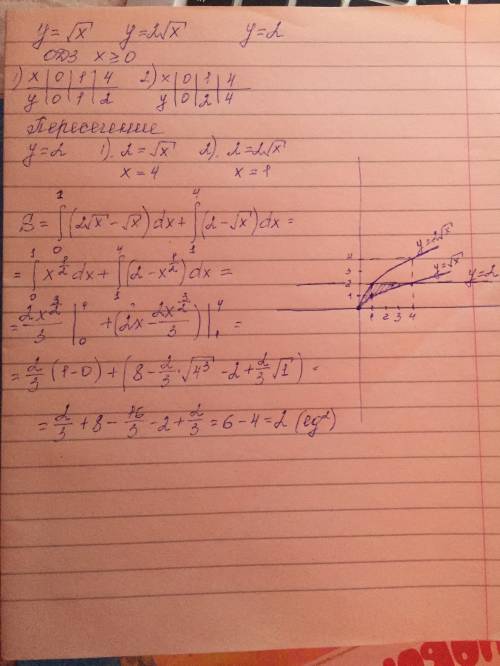 y=√x y=2√x y=2
ОДЗ x≥0
1) x | 0 | 1 | 4 2) x | 0 | 1 | 4
y | 0 | 1 | 2 y | 0 | 2 | 4
Пересечение
y=2 1). 2=√x 2). 2=2√x
x=4 x=1
S = ∫₀¹ (2√x - √x) dx + ∫₁⁴ (2 - √x) dx =
= ∫₀¹ x^(1/2) dx + ∫₁⁴ (2 - x^(1/2)) dx =
= 2x^(3/2)/3 |₀¹ + (2x - 2x^(3/2)/3) |₁⁴ =
= 2/3 (1-0) + (8 - 2/3 · √4³ - 2 + 2/3 √1) =
= 2/3 + 8 - 16/3 - 2 + 2/3 = 6 - 4 = 2 (ед²)
y=2√x
y=√x
y=2
4
3
2
1
1 2 3 4